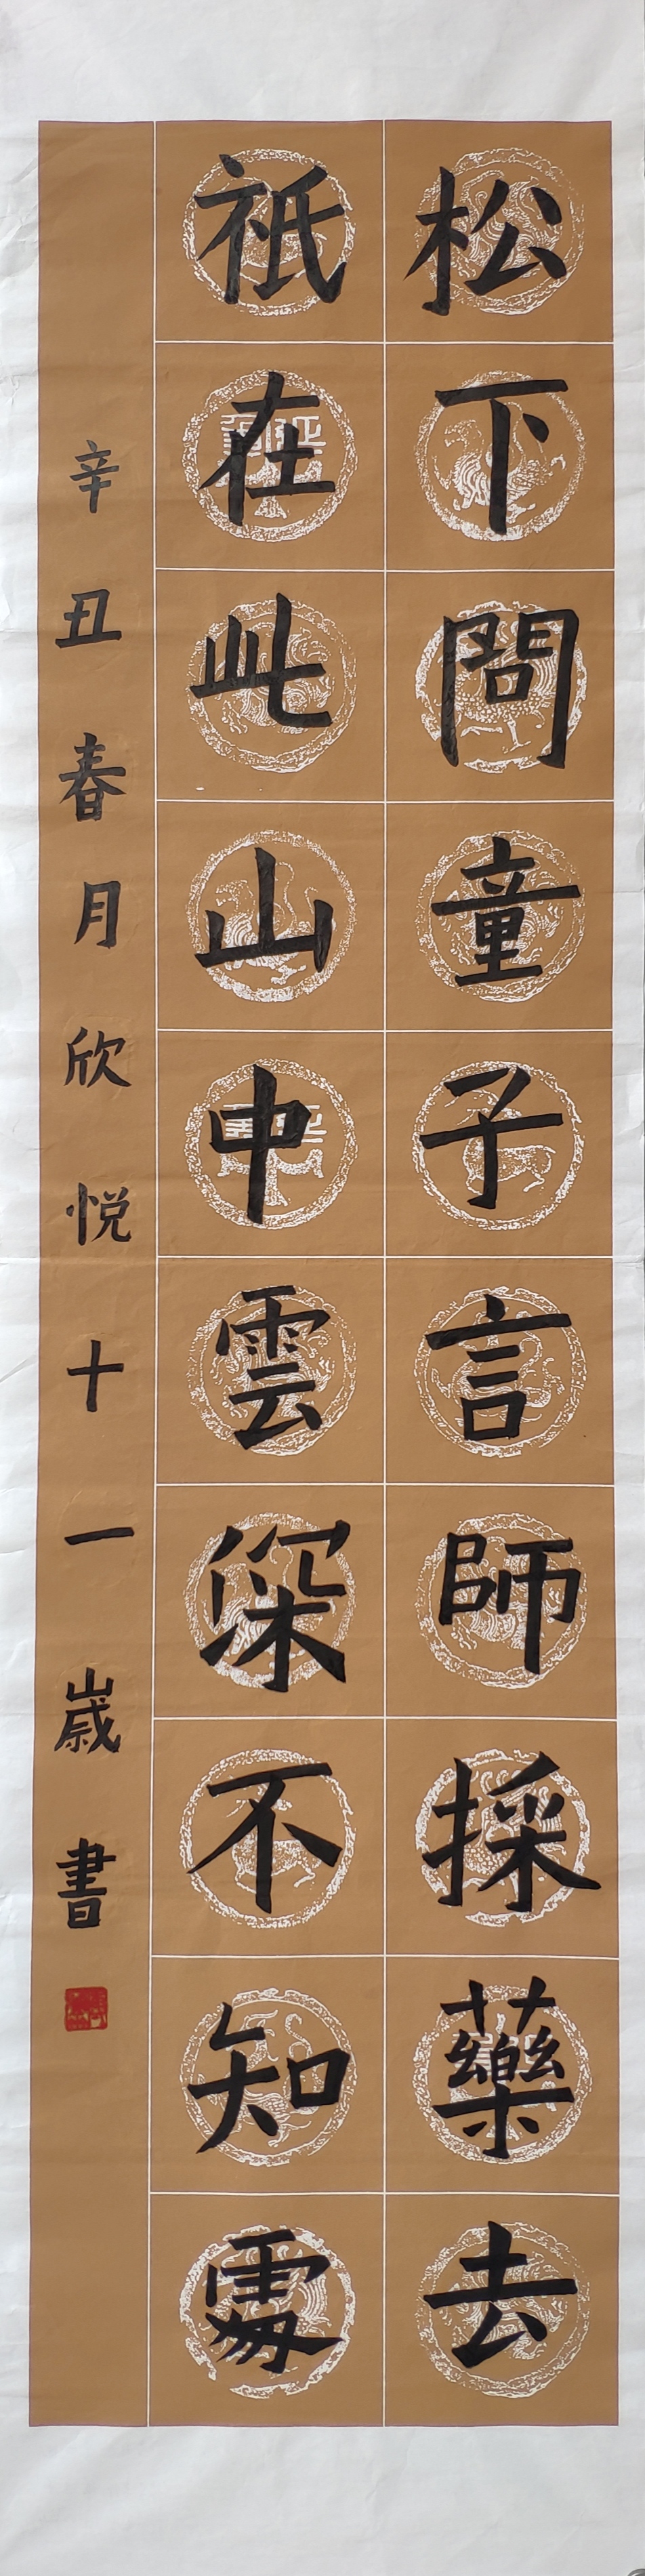 松下問童子言師採藥去
祇在此山中雲深不知處
辛丑春月欣悦十一歲書